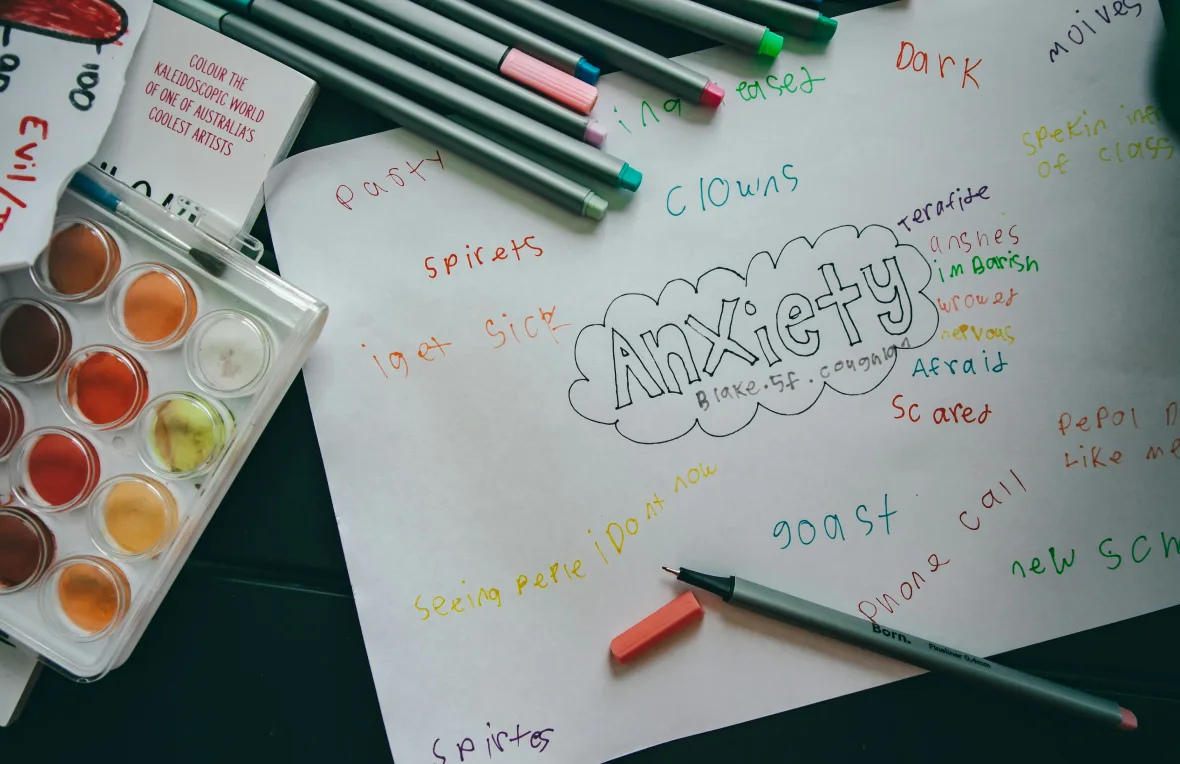 COLOUR THE
KALEIDOSCOPIC WORLD
OF ONE OF AUSTRALIA'S
COOLEST ARTISTS
100
Evil/
Dark
moives
ing eased
spekin
of class
party
clowns
terafide
spirets
anshes
imbarish
wroued
nervous
Afraid
Scared
iget sick
Anxiety
Blake.5f.
pepol
Like me
seeing peple iDont now
goast
phone call
new sch
Born.
Fineliner 0.4mm
spirtes